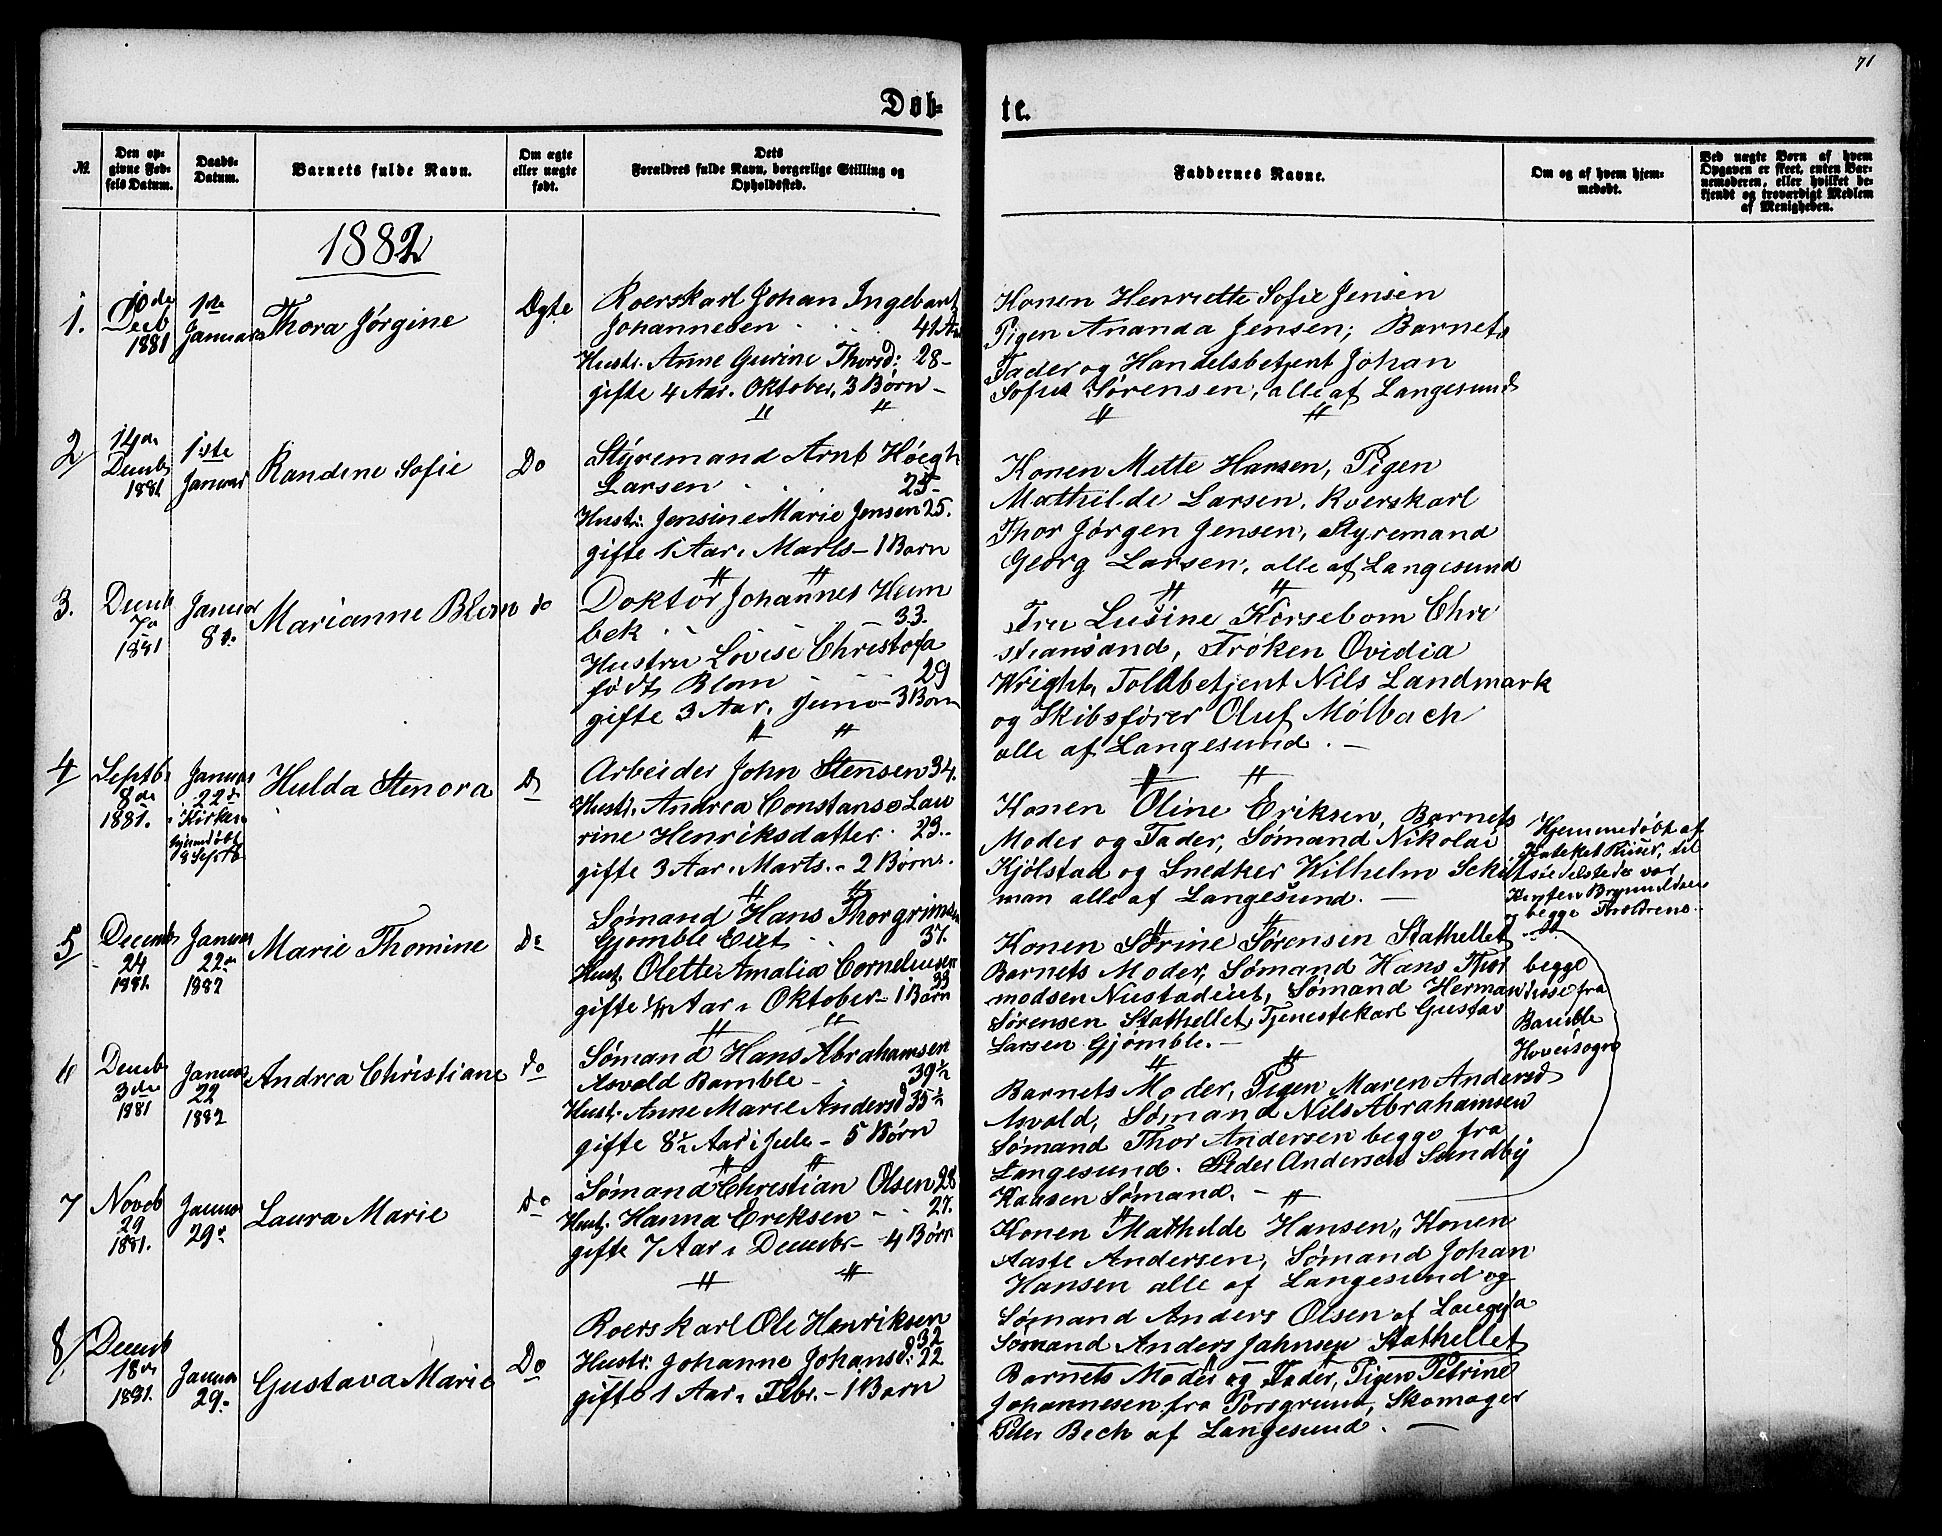 71
Døb-
te.
№
Den op-
givne Fød-
sels Datum.
Daabs-
Datum.
Barnets fulde Navn.
Om ægte
eller uægte
født.
Dets
Forældres fulde Navn, borgerlige Stilling og
Opholdssted.
Faddernes Navne.
Om og af hvem hjem-
medøbt.
Ved uægte Børn af hvem
Opgaven er skeet, enten Bar-
nemoderen, eller hvilket be-
kjendt og troværdigt Medlem
af Menigheden.
1882
1.
10de
Decb
1881
1ste
Januar
Thora Jørgine
Ægte
Roerskarl Johan Ingebart
Johannesen 41 Aar
Hustr. Anne Gurine Thorsd: 28-
gifte 4 Aar. Oktober, 3 Børn -
Konen Henriette Sofie Jensen
Pigen Ananda Jensen; Barnets
Fader og Handelsbetjent Johan
Sofus Sørensen, alle af Langesund
2
14de
Decmb
1881
1ste
Januar
Randine Sofie
Do
Styremand Arnt Høegh
Larsen 25-
Hustr: Jensine Marie Jensen 25.
gifte 1 Aar i Marts - 1 Barn
Konen Mette Hansen, Pigen
Mathilde Larsen, Roerskarl
Thor Jørgen Jensen, Styremand
Georg Larsen, alle af Langesund
3.
Decmb
7de
1881
Januar
8de
Marianne Blom
do
Doktor Johannes Heim
bek 33.
Hustru Lovise Christofa
født Blom 29
gifte 3 Aar, Juni - 3 Børn
Fru Lusine Korsebom Chri
stiansand, Frøken Ovidia
Wright, Toldbetjent Nils Landmark
og Skibsfører Oluf Mølbach
alle af Langesund. -
4
Septb.
8de
1881.
Januar
22de
i Kirken
hjemdøbt
8 Septb
Hulda Stenora
Do
Arbeider John Stensen 34.
Hustr. Andrea Constanse Lau
rine Henriksdatter 23..
gifte 3 Aar i Marts. - 2 Børn.
Konen Oline Eriksen, Barnets
Moder og Fader, Sømand Nikolai
Kjølstad og Snedker Wilhelm Schit
man alle af Langesund. -
Hjemmedøbt af
til
stede var
begge Forældrene.
5
Decemb
24
1881.
Januar
22de
1882
Marie Thomine
Do
Sømand Hans Thorgrimsen
Gjømble Eiet 37.
Hust. Olette Amalia Corneliusen
33
gifte 1/4 Aar i Oktober - 1 Barn
Konen Sørine Sørensen Stathellet
Barnets Moder, Sømand Hans Thor
modsen Nustadeiet, Sømand Herman
Sørensen Stathellet, Tjenestekarl Gustav
Larsen Gjømble. -
begge
disse fra
Bamble
Hovedsogn
6
Decmb
3de
1881
Januar
22
1882
Andrea Christiane
do
Sømand Hans Abrahamsen
Asvald Bamble - 39½
Hust. Anne Marie Andersd 35½
gifte 8½ Aar i Jule - 5 Børn
Barnets Moder, Pigen Maren Andersd
Asvald, Sømand Nils Abrahamsen
Sømand Thor Andersen begge fra
Langesund. Peder Andersen Sundby
Kaasen Sømand. -
7
Novb
29
1881.
Januar
29de
Laura Marie
do
Sømand Christian Olsen 28
Hust. Hanna Eriksen - 27.
gifte 7 Aar i Decmbr - 4 Børn
Konen Mathilde Hansen, Konen
Aaste Andersen, Sømand Johan
Hansen alle af Langesund og
Sømand Anders Olsen af Langøja
Sømand Anders Jahnsen Stathellet
8
Decmb
18de
1881.
Januar
29de
Gustava Marie
Do
Roerskarl Ole Henriksen
32
Hustr: Johanne Johansd: 22
gifte 1 Aar i Febr. - 1 Barn
Barnets Moder og Fader, Pigen Petrine
Johannesen fra Porsgrund, Skomager
Peter Bech af Langesund. -